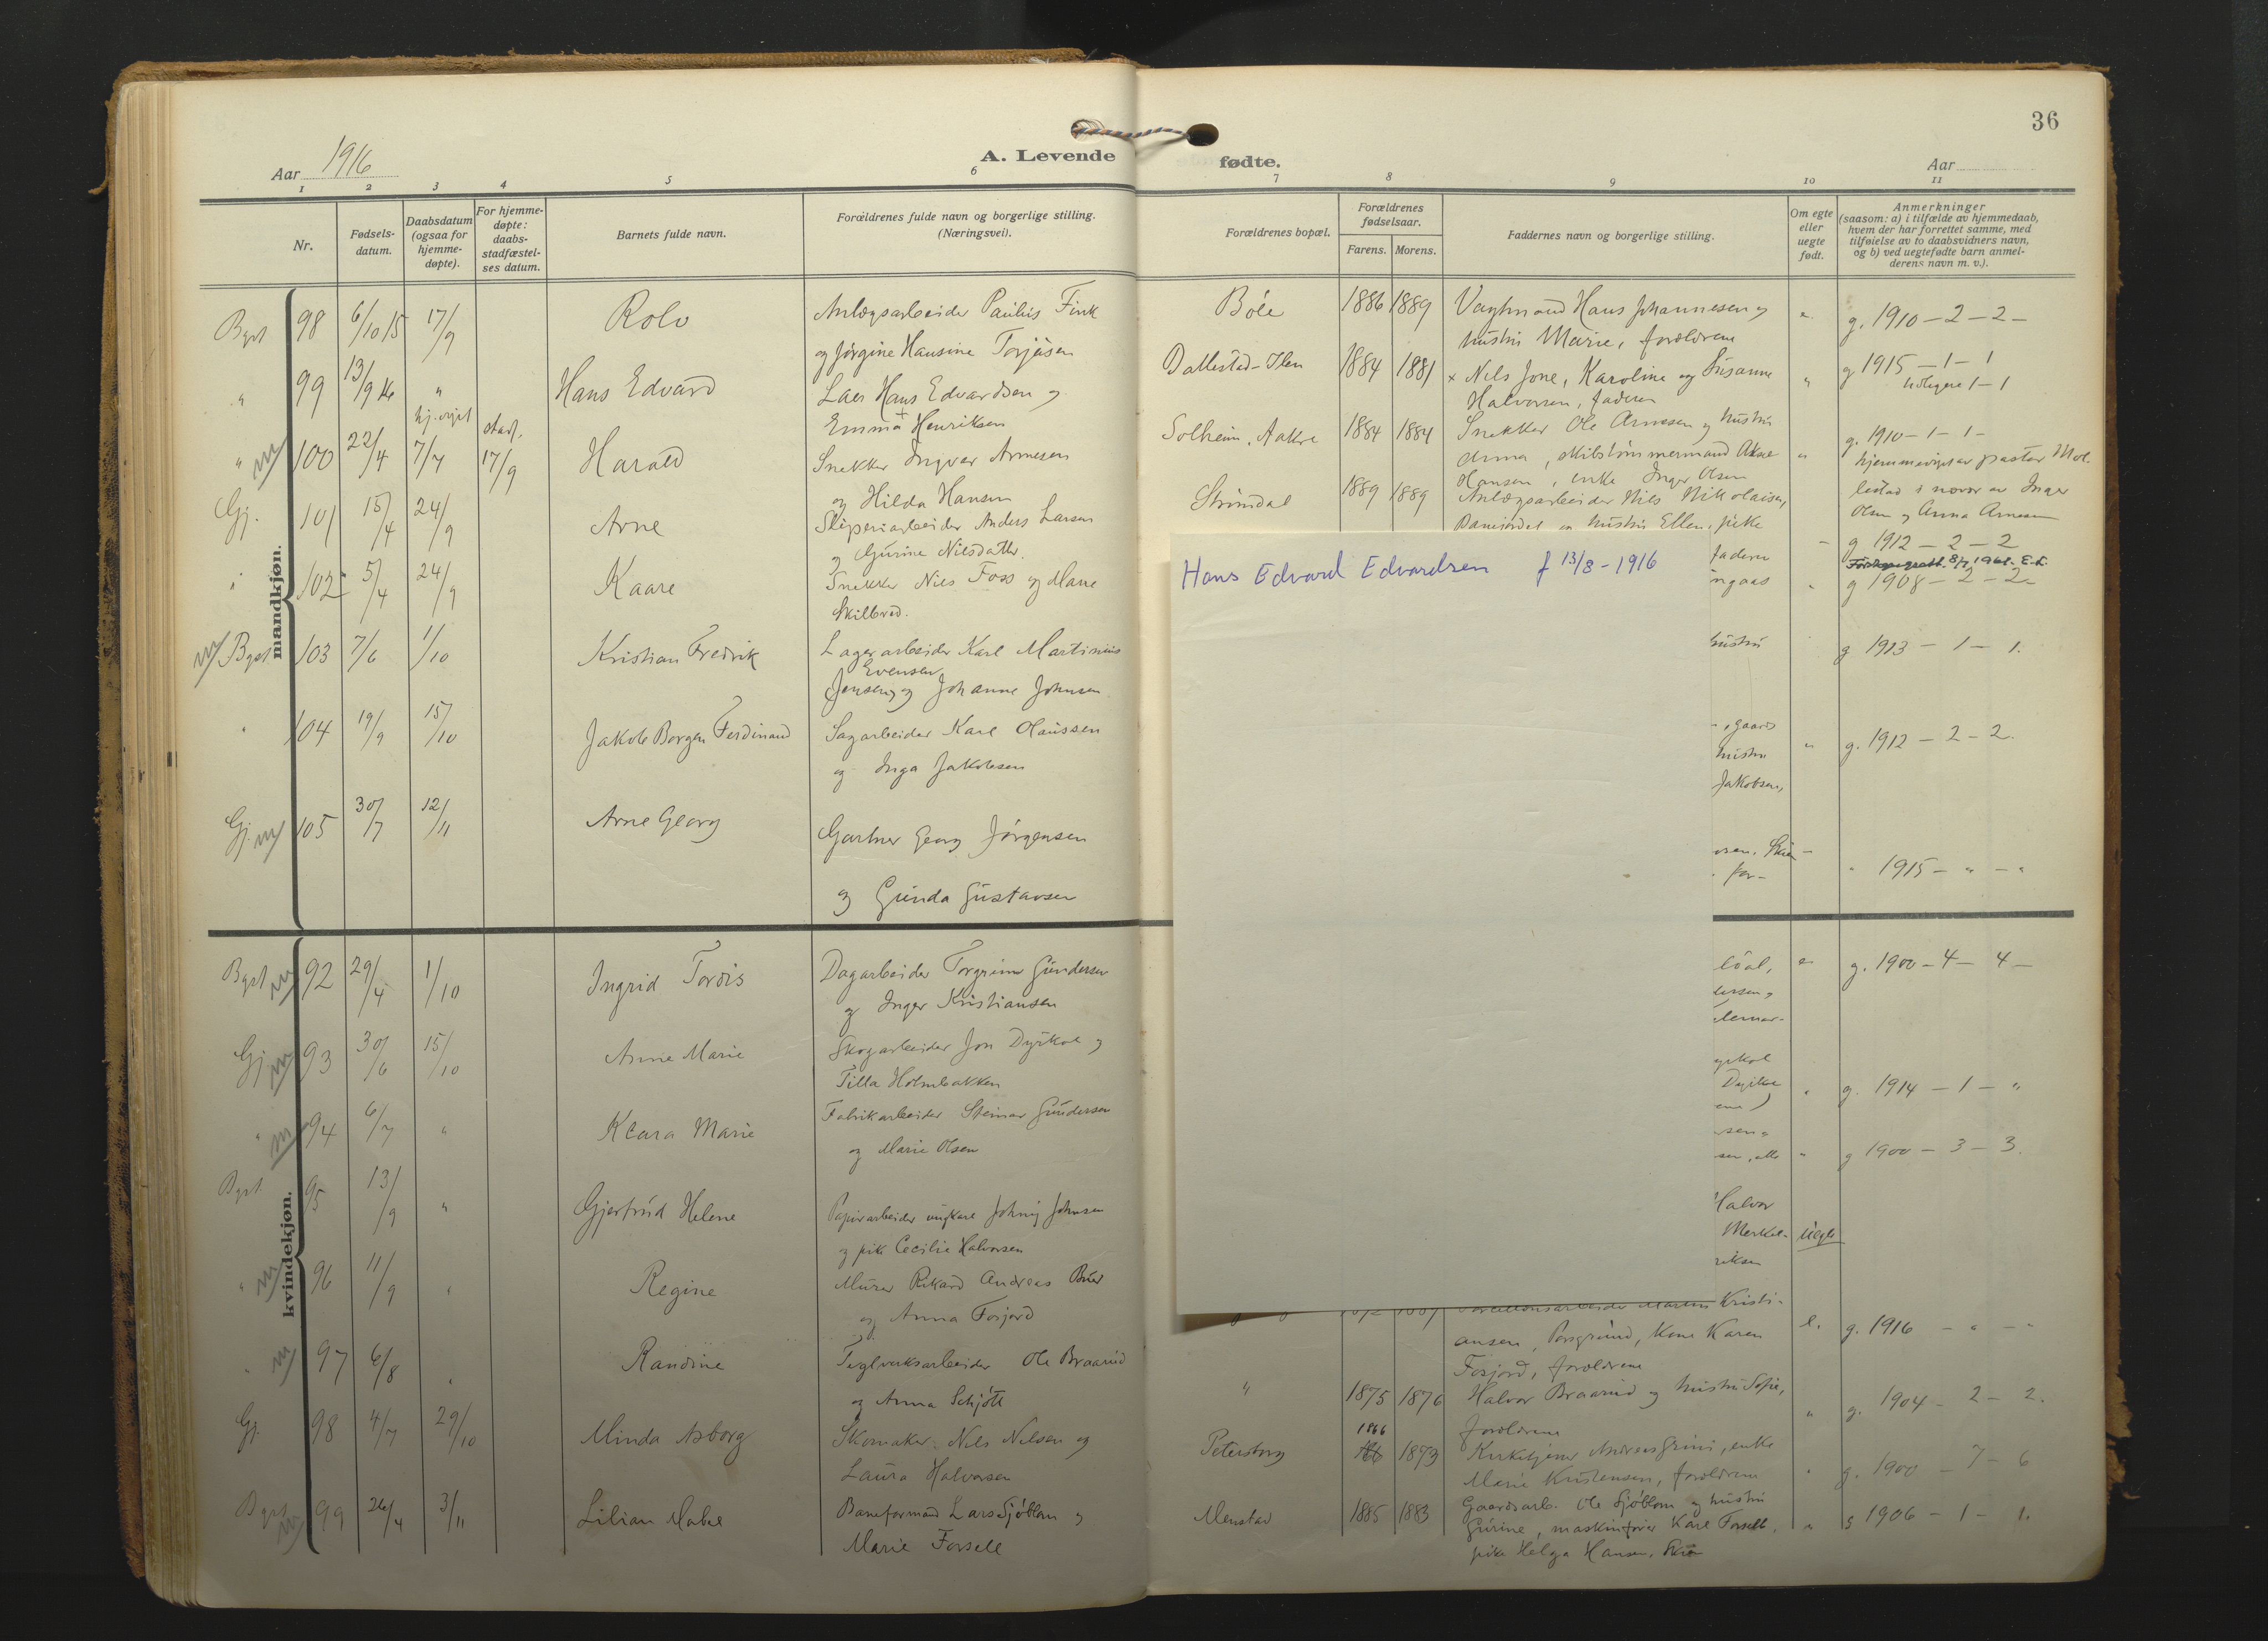 36
Aar 1916
A. Levende fødte.
Aar
1 2 3 4 5 6 7 8 9 10 11
Nr.
Fødsels-
datum.
Daabsdatum
(ogsaa for
hjemme-
døpte).
For hjemme-
døpte:
daabs-
stadfæstel-
ses datum.
Barnets fulde navn.
Forældrenes fulde navn og borgerlige stilling.
(Næringsvei).
Forældrenes bopæl.
Forældrenes
fødselsaar.
Farens. Morens.
Faddernes navn og borgerlige stilling.
Om egte
eller
uegte
født.
Anmerkninger
(saasom: a) i tilfælde av hjemmedaab,
hvem der har forrettet samme, med
tilføielse av to daabsvidners navn,
og b) ved uegtefødte barn anmel-
derens navn m. v.).
mandkjøn.
98 6/10 15 17/9 Rolv Anlægsarbeider Paulus Fink
og Jørgine Hansine Torjusen
Bøle 1886 1889 Hans Johannesen og
hustru Marie, forældrene
e. g. 1910 - 2 - 2 -
" 99 13/9 16 " Hans Edvard Hans Edvardsen og
Emma Henriksen
1884 1881 x Nils Jone, Karoline og Susanne
Halvorsen, faderen
" g 1915 - 1 - 1
1 - 1
" 100 22/4 7/7 stad. 17/9 Harald Snekker Ingvar Arnesen
og Hilda Hansen
Solheim, Aakre 1884 1884 Snekker Ole Arnesen og hustru
Anna,
Hansen, enke Inger Olsen
" g. 1910 - 1 - 1 -
pastor Møl-
lestad i nærvær av Inger
Olsen og Anna Arnesen
Gj. 101 15/4 24/9 Arne Sliperiarbeider Anders Larsen
og Gurine Nilsdatter.
Strømdal 1889 1889 Anlægsarbeider Nils Nikolaisen,
og hustru Ellen, pike
faderen
- g 1912 - 2 - 2
102 5/4 24/9 Kaare Snekker Nils Foss og Maren
Skilbred.
g 1908 - 2 - 2 -
Hans Edvard Edvardsen f 13/8 - 1916
103 7/6 1/10 Kristian Fredrik Lagerarbeider Karl Martinius
Evensen
Jensen og Johanne Johnsen
hustru
g 1913 - 1 - 1.
" 104 19/9 15/10 Jakob Borgen Ferdinand Sagarbeider Karl Olaussen
og Inga Jakobsen
gaard
hustru
Jakobsen,
" g. 1912 - 2 - 2.
Gj. 105 30/7 12/11 Arne Georg Gartner Georg Jørgensen
og Gunda Gustavsen
for-
" 1915 - " - "
kvindekjøn.
92 29/4 1/10 Ingrid Tordis Dagarbeider Torgrim Gundersen
og Inger Kristiansen
e g. 1900 - 4 - 4 -
Gj. 93 30/6 15/10 Anne Marie Skogarbeider Jon Dyrkol og
Tilla Holmbakken
" g. 1914 - 1 - "
" 94 6/7 " Klara Marie Fabrikarbeider Steinar Gundersen
og Marie Olsen
" g 1900 - 3 - 3.
95 13/9 " Gjertrud Helene Papirarbeider ungkarl Johnny Johnsen
og pike Cecilie Halvorsen
Halvor
uegte
" 96 11/9 " Regine Murer Rikard Andreas
og Anna Forjord
Kristi-
ansen, Porsgrund, kone Karen
Forjord, forældrene
e. g. 1916 - " - "
" 97 6/8 " Randine Teglverksarbeider Ole Braarud
og Anna Schjøtt
" 1875 1876 Halvor Braarud og hustru Sofie,
forældrene
" g. 1904 - 2 - 2.
Gj. 98 4/7 29/10 Minda Asborg Skomaker Nils Nilsen og
Laura Halvorsen
Petersborg 1866 1873 Kirketjener Andreas Grini, enke
Marie Kristensen, forældrene
" g. 1900 - 7 - 6
99 26/4 3/11 Lilian Mabel Baneformand Lars Sjøblom og
Marie Forsell
Menstad 1885 1883 Gaardsarb. Ole Sjøblom og hustru
Gurine, maskinfører Karl Forsell,
pike Helga Hansen, Skien
" g 1906 - 1 - 1.